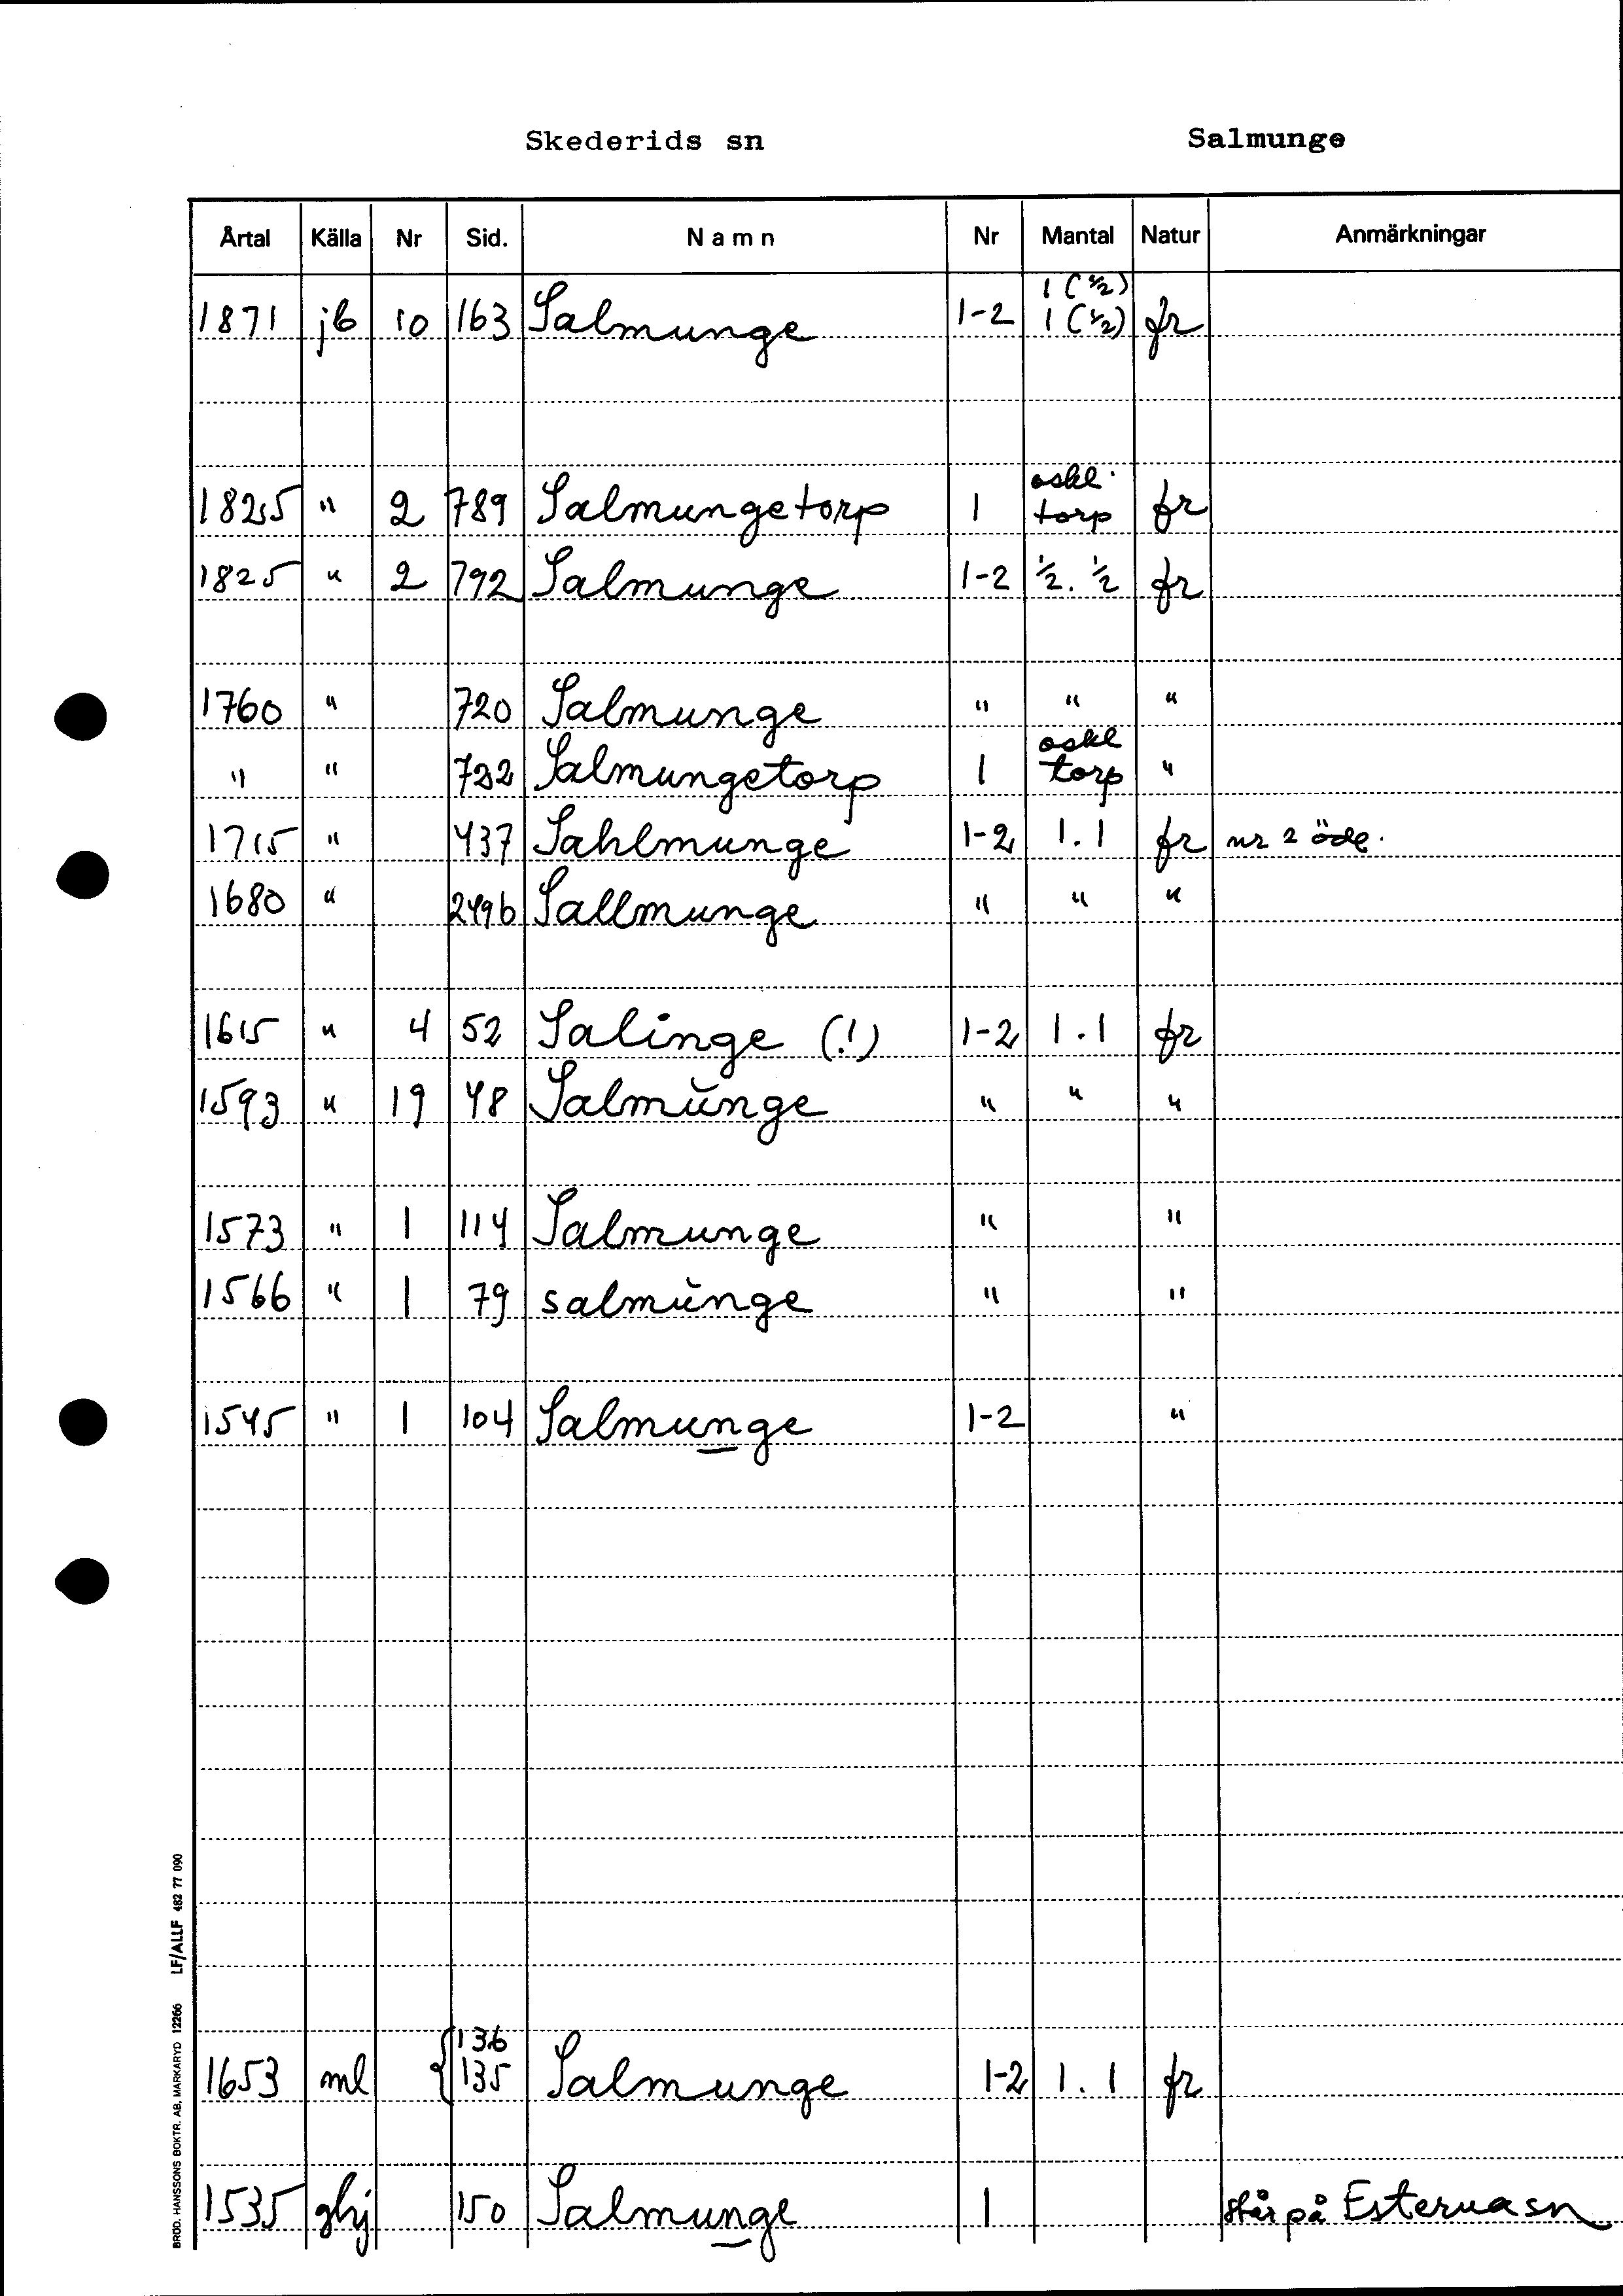 Skederids sn Salmunge
Årtal Källa Nr Sid. Namn Nr Mantal Natur Anmärkningar
1 (½)
1871 jb 10 163 Salmunge 1-2 1 (½) fr
oskl.
1825 " 2 789 Salmungetorp 1 torp fr
1825 " 2 792 Salmunge 1-2 ½. ½ fr
1760 " 720 Salmunge " " "
oskl
" " 722 Salmungetorp 1 torp "
1715 " 437 Sahlmunge 1-2 1.1 fr nr 2 öde.
1680 " 2496 Sallmunge " " "
1615 " 4 52 Salinge (!) 1-2 1.1 fr
1593 " 19 48 Salmŭnge " " "
1573 " 1 114 Salmunge " "
1566 " 1 79 salmŭnge " "
1545 " 1 104 Salmunge 1-2 "
136
1653 ml { 135 Salmunge 1-2 1.1 fr
1535 ghj 150 Salmunge 1 står på Esterna sn
BRÖD. HANSSONS BOKTR. AB, MARKARYD 12266 LF/ALLF 482 77 090